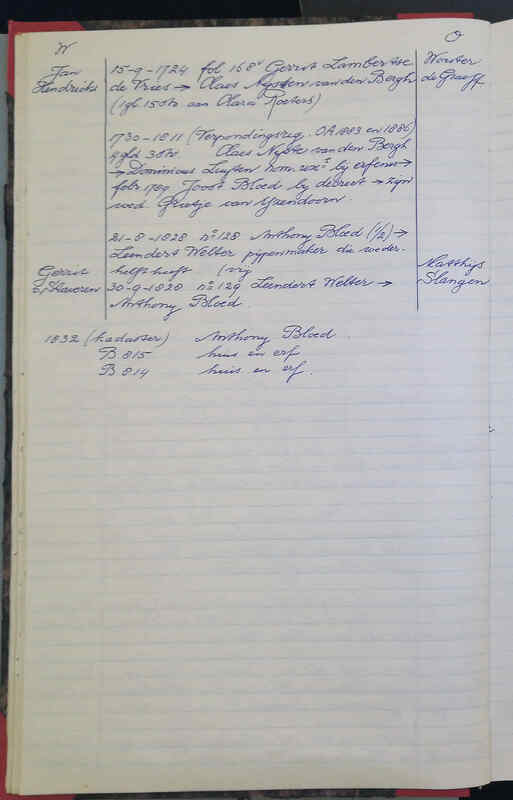 W
O
Jan
Hendricks
15-9-1724 fol 168v Gerrit Lambertse
de Vries → Claes Nijsten van den Bergh
(1gh 15 str aan Clara Roeters)
Wouter
de Graeff
1730-1811 (Verpondingsreg. OA 1883 en 1886)
9 gld 3 str. Claes Nijste van den Bergh
→ Dominicus Luijten nom. ux. bij erfenis →
folr 1789 Joost Bloed bij decreet → zijn
wed. Grietje van IJzendoorn.
21-8-1828 no 128 Anthony Bloed (1/2) →
Leendert Welter pijpenmaker die weder-
helft heeft (vrij
Gerrit
v. Staveren
30-9-1820 no 129 Leendert Welter →
Anthony Bloed.
Matthijs
Slangen
1832 (kadaster) Anthony Bloed.
B 815 huis en erf
B 814 huis en erf.